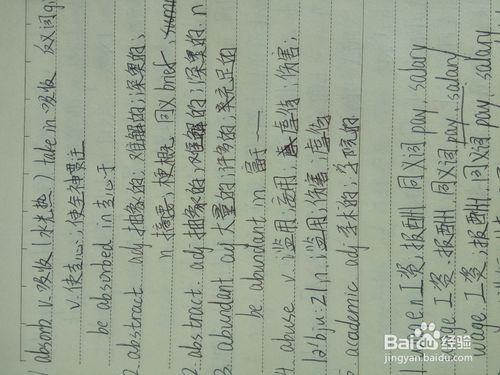 1 absorb v. 吸收(水光热) take in 吸收 反义词
v. 使专心;使全神贯注
be absorbed in 专心于
2. abstract adj 抽象的;难解的;深奥的;
n 摘要 梗概 同义 brief
2. abstract. adj 抽象的;难解的;深奥的. n
3. abundant adj 大量的;许多的;充足的
be abundant in 富于
4 abuse v. 滥用;虐待;伤害;
n. 滥用;伤害;虐待
5 academic adj 学术的;学院的
n 工资,报酬 同义词 pay, salary
wage 工资.报酬 同义词 pay, salary
wage 工资;报酬 同义词 pay, salary
Baidu 经验
jingyan.baidu.com